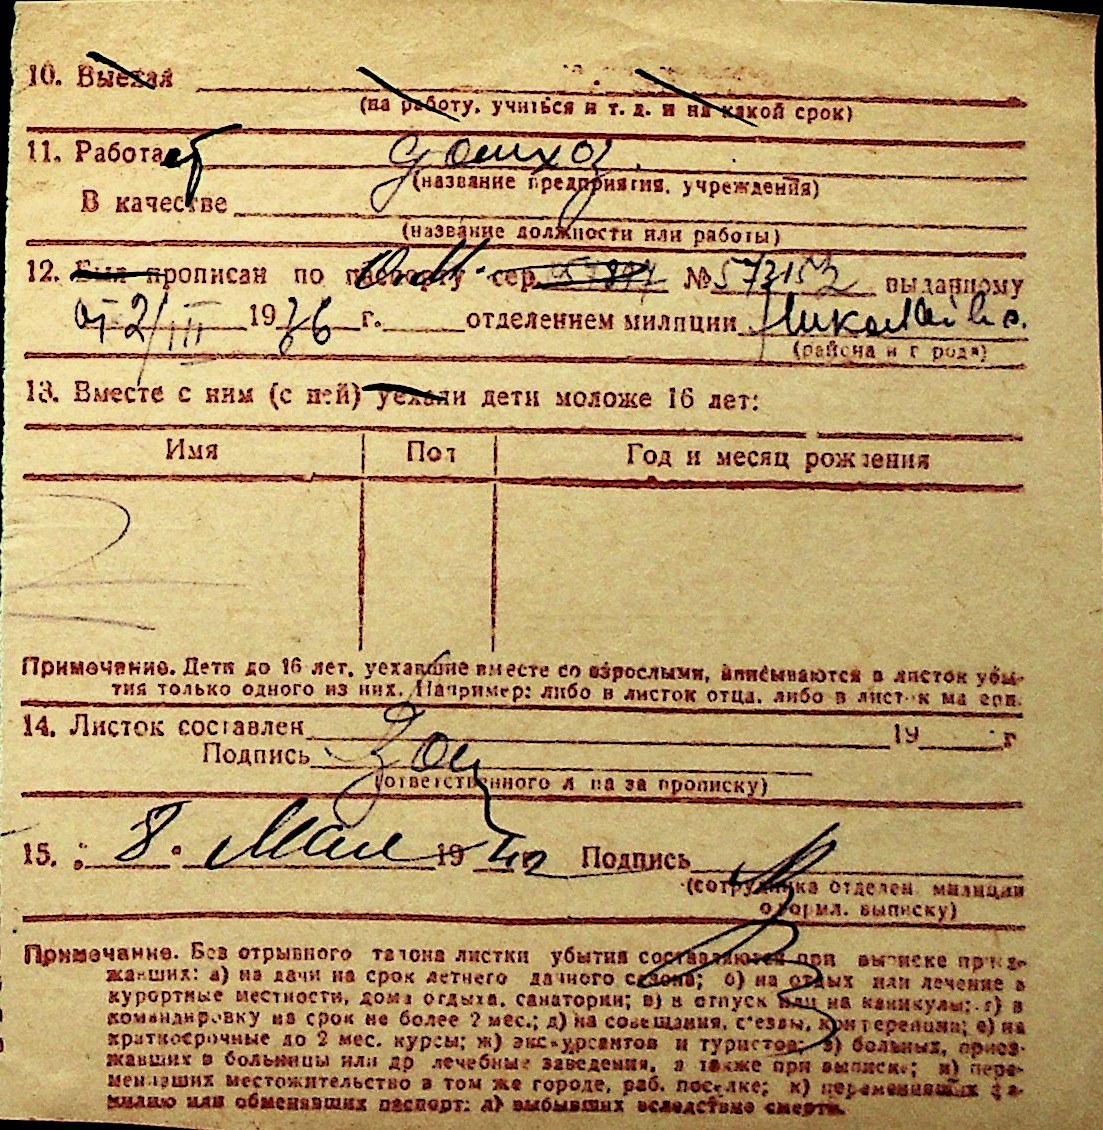 10. Выехал
(на работу, учиться и т. д. и на какой срок)
11. Работает домхоз.
(название предприятия, учреждения)
В качестве
(название должности или работы)
12. Был прописан по паспорту сер. № 573153 выданному
от 2/III 1936 г. отделением милиции
(района и города)
13. Вместе с ним (с ней) уехали дети моложе 16 лет:
Имя Пол Год и месяц рождения
Примечание. Дети до 16 лет, уехавшие вместе со взрослыми, вписываются в листок убы-
тия только одного из них. Например: либо в листок отца, либо в листок матери.
14. Листок составлен 19 г
Подпись
(ответственного лица за прописку)
15. „ 8 " Мая 19 42 Подпись
(сотрудника отделен. милиции
оформл. выписку)
Примечание. Без отрывного талона листки убытия составляются при выписке приез-
жавших: а) на дачи на срок летнего дачного сезона; б) на отдых или лечение в
курортные местности, дома отдыха, санатории; в) в отпуск или на каникулы; г) в
командировку на срок не более 2 мес.; д) на совещания, съезды, конференции; е) на
краткосрочные до 2 мес. курсы; ж) экскурсантов и туристов; з) больных, приез-
жавших в больницы или др лечебные заведения, а также при выписке; и) пере-
менивших местожительство в том же городе, раб. поселке; к) переменивших фа-
милию или обменявших паспорт; л) выбывших вследствие смерти.